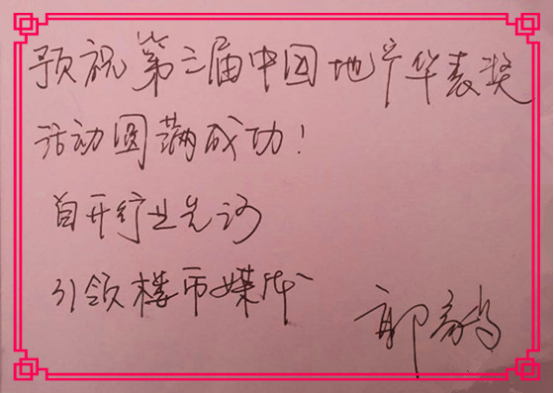 预祝第三届中国地产华表奖
活动圆满成功!
首开行业先河
引领楼市媒体
郭